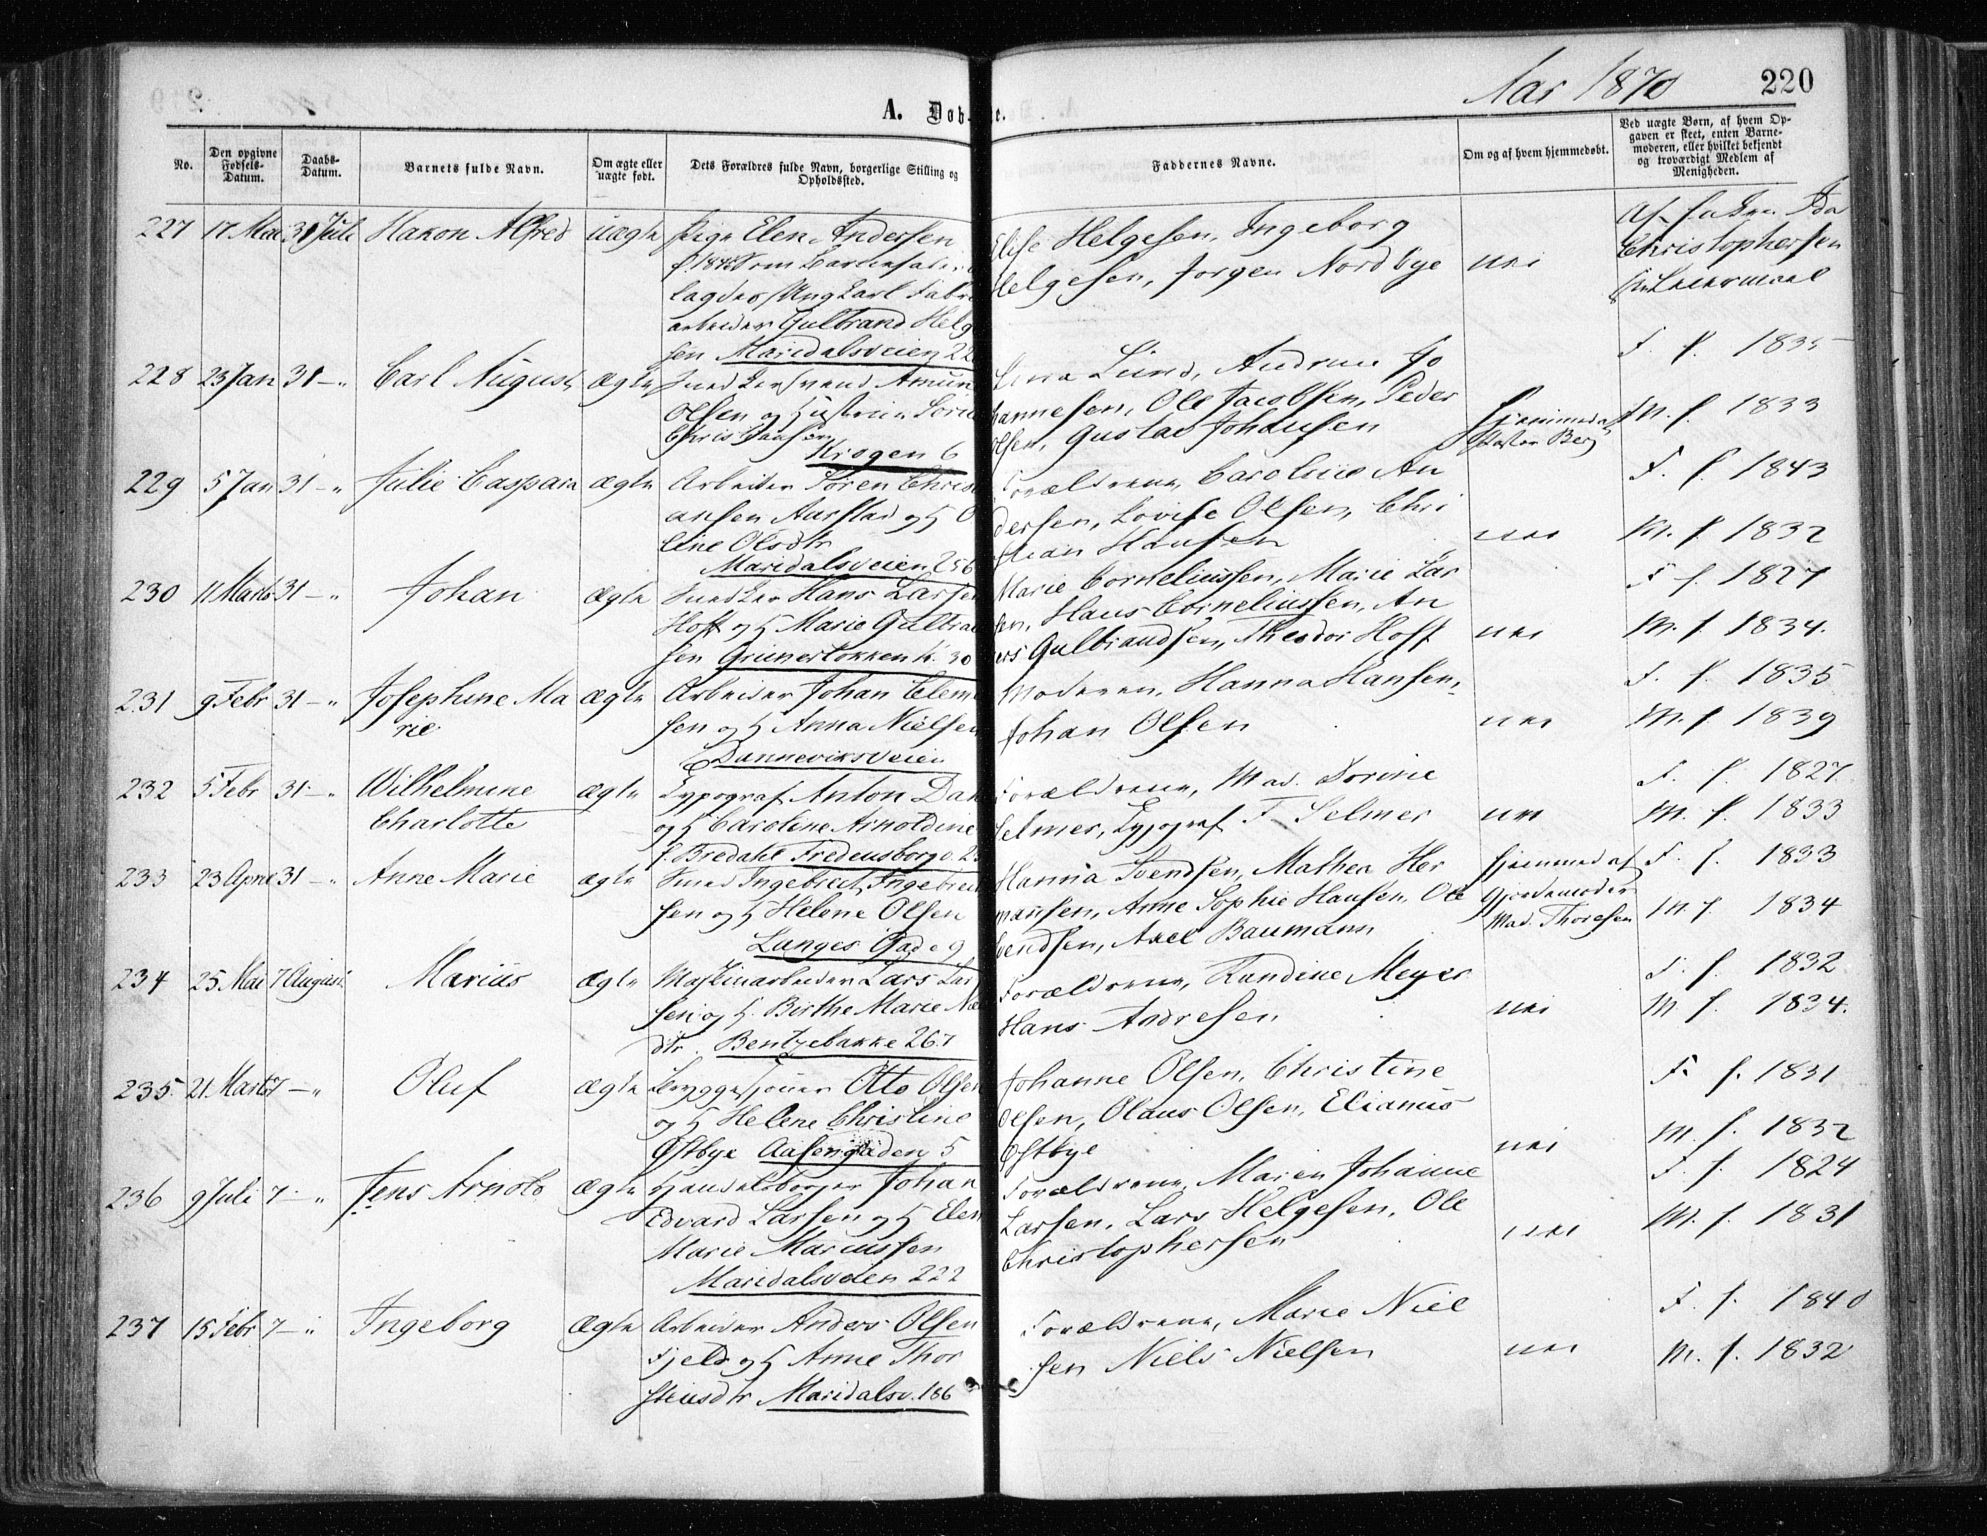 Aar 1870
220
A. Døbte.
No.
Den opgivne Fødsels-Datum.
Daabs-Datum.
Barnets fulde Navn.
Om ægte eller uægte født.
Dets Forældres fulde Navn, borgerlige Stilling og Opholdssted.
Faddernes Navne.
Om og af hvem hjemmedøbt.
Ved uægte Børn, af hvem Opgaven er skeet, enten Barnemoderen, eller hvilket bekjendt og troværdigt Medlem af Menigheden.
227 17 Mai 31 Juli Hakon Alfred uægte Pige Elen Andersen
Ungkarl Fabr
arbeider Gulbrand Helg
sen Maridalsveien 22
Elise Helgesen, Ingeborg
Helgesen, Jørgen Nordbye
nei
Af Ida
Christophersen
F. f. 1835
228 23 Jan 31 – " Carl August ægte Amun
Olsen og Hustru Sørine
Christiansen
Krogen 6
Lund, Andrine Jo
hannesen, Ole Jacobsen, Peder
Olsen, Gustav Johansen
Hjemmed. af
Pastor Berg
M. f. 1833
F. f. 1843
229 5 Jan 31 – " Julie Caspara ægte Arbeider Søren Christ
ansen Aarstad og H O
line Olsdtr
Maridalsveien 256
Forældrene, Caroline An
dersen, Lovise Olsen, Chri
stian Hansen
nei
M. f. 1832
F. f. 1827
230 11 Marts 31 – " Johan ægte Snedker Hans Larsen
Hoff og H Marie Gulbran
sen Grünerløkken N. 30
Marie Corneliussen, Marie Lar
sen, Hans Corneliussen, An
ders Gulbrandsen, Theodor Hoff
nei
M. f. 1834.
F. f. 1835
231 9 Febr 31 – " Josephine Ma
rie
ægte Arbeider Johan Clem
sen og H Anna Nielsen
Danneviksveien
Moderen, Hanna Hansen,
Johan Olsen
nei
M. f. 1839
F. f. 1827
232 5 Febr 31 – " Wilhelmine
Charlotte
ægte Typograf Anton Dah
og H Caroline Arnoldine
f. Bredahl Fredensborgv. 23
Forældrene, Mad. Dorine
Selmer, Typograf F. Selmer
nei
M. f. 1833
F. f. 1833
233 23 April 31 – " Anne Marie ægte Smed Ingebret Ingebret
sen og H Helene Olsen
Langes Gade 9
Hanna Svendsen, Mathea Her
mansen, Anne Sophie Hansen, Ole
Svendsen, Axel Baumann
Hjemmed af
Gjordemoder
Mad. Thoresen
M. f. 1834
F. f. 1832
234 25 Mai 7 August Marius ægte Maskinarbeider Lars Lar
sen og H. Birthe Marie
dtr. Bentzebakke 267
Forældrene, Randine Meyer
Hans Andresen
nei
M. f. 1834.
F. f. 1831
235. 21 Marts 7 – " Oluf ægte Bryggesjouer Otto Olsen
og H Helene Christine
Østbye Aasengaden 5
Johanne Olsen, Christine
Olsen, Olaus Olsen, Elianus
Østbye
nei
M. f. 1832
F. f. 1824
236 9 Juli 7 – " Jens Arnold ægte Handelsborger Johan
Edvard Larsen og H Elen
Marie Marcussen
Maridalsveien 222
Forældrene, Maren Johanne
Larsen, Lars Helgesen, Ole
Christophersen
nei
M. f. 1831
F. f. 1840
237 15 Febr 7 – " Ingeborg ægte Arbeider Anders Olsen
Fjeld og H Anne Thor
stensdtr Maridalsv. 186
Forældrene, Marie Niel
sen Niels Nielsen
nei
M. f. 1832